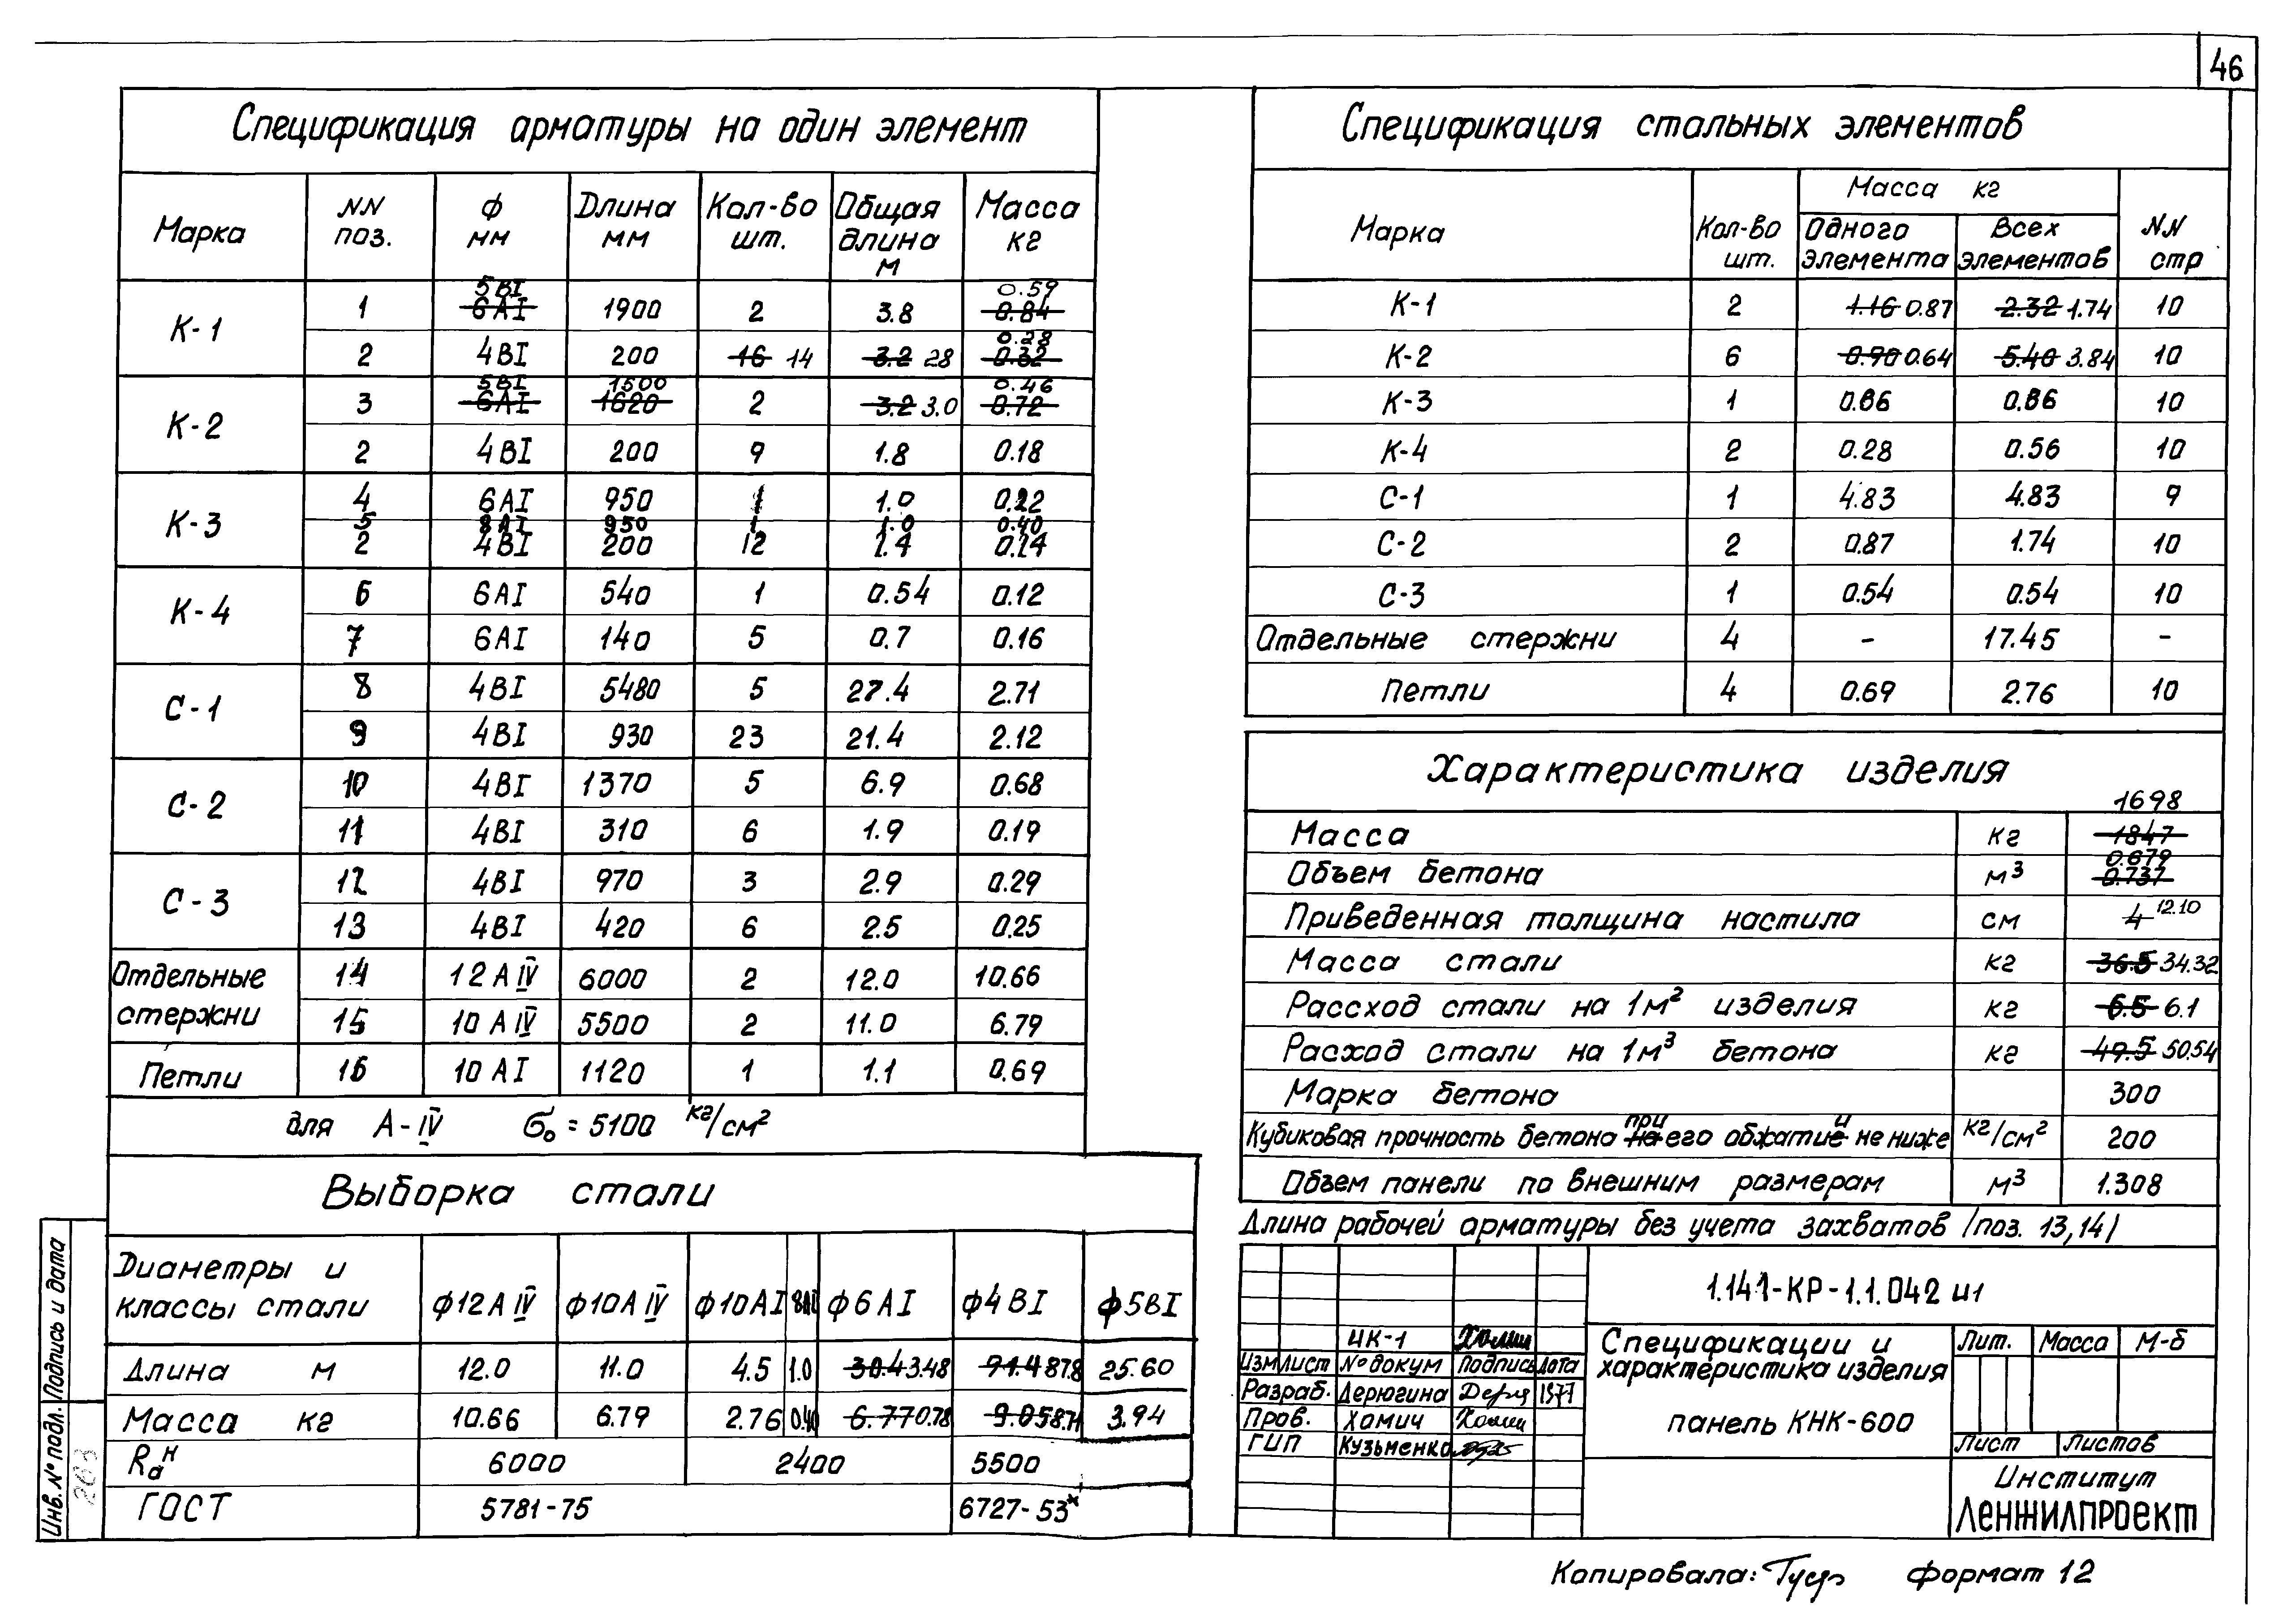 46
Спецификация арматуры на один элемент
Марка NN поз. ф мм Длина мм Кол-во шт. Общая длина м Масса кг
К-1 1 5ВI 6АI 1900 2 3.8 0.59 0.84
2 4ВI 200 16 14 3.2 28 0.28 0.32
К-2 3 5ВI 6АI 1500 1620 2 3.2 3.0 0.46 0.72
2 4ВI 200 9 1.8 0.18
К-3 4 6АI 950 1 1.0 0.22
5 8АI 950 1 1.0 0.40
2 4ВI 200 12 2.4 0.24
К-4 6 6АI 540 1 0.54 0.12
7 6АI 140 5 0.7 0.16
С-1 8 4ВI 5480 5 27.4 2.71
9 4ВI 930 23 21.4 2.12
С-2 10 4ВI 1370 5 6.9 0.68
11 4ВI 310 6 1.9 0.19
С-3 12 4ВI 970 3 2.9 0.29
13 4ВI 420 6 2.5 0.25
Отдельные стержни 14 12 А IV 6000 2 12.0 10.66
15 10 А IV 5500 2 11.0 6.79
Петли 16 10 АI 1120 1 1.1 0.69
для А-IV σ₀ = 5100 кг/см²
Выборка стали
Диаметры и классы стали ф12А IV ф10А IV ф10АI 8АI ф6АI ф4ВI ф5ВI
Длина м 12.0 11.0 4.5 1.0 30.4 3.48 91.4 87.8 25.60
Масса кг 10.66 6.79 2.76 0.40 6.77 0.78 9.05 8.71 3.94
Rан 6000 2400 5500
ГОСТ 5781-75 6727-53*
Инв. № подл. Подпись и дата
Спецификация стальных элементов
Марка Кол-во шт. Масса кг NN стр
Одного элемента Всех элементов
К-1 2 1.16 0.87 2.32 1.74 10
К-2 6 0.90 0.64 5.40 3.84 10
К-3 1 0.86 0.86 10
К-4 2 0.28 0.56 10
С-1 1 4.83 4.83 9
С-2 2 0.87 1.74 10
С-3 1 0.54 0.54 10
Отдельные стержни 4 - 17.45 -
Петли 4 0.69 2.76 10
Характеристика изделия
Масса кг 1698 1847
Объем бетона м³ 0.679 0.737
Приведенная толщина настила см 4 12.10
Масса стали кг 36.5 34.32
Рассход стали на 1м² изделия кг 6.5 6.1
Расход стали на 1м³ бетона кг 49.5 50.54
Марка бетона 300
Кубиковая прочность бетона при на его обжатие и не ниже кг/см² 200
Объем панели по внешним размерам м³ 1.308
Длина рабочей арматуры без учета захватов /поз. 13,14/
1.141-КР-1.1.042 и1
ИК-1
Изм Лист № докум Подпись Дата
Разраб. Дерюгина 1977
Пров. Хомич
ГИП Кузьменко
Спецификации и характеристика изделия
панель КНК-600
Лит. Масса М-б
Лист Листов
Институт
ЛЕНЖИЛПРОЕКТ
Копировала: формат 12